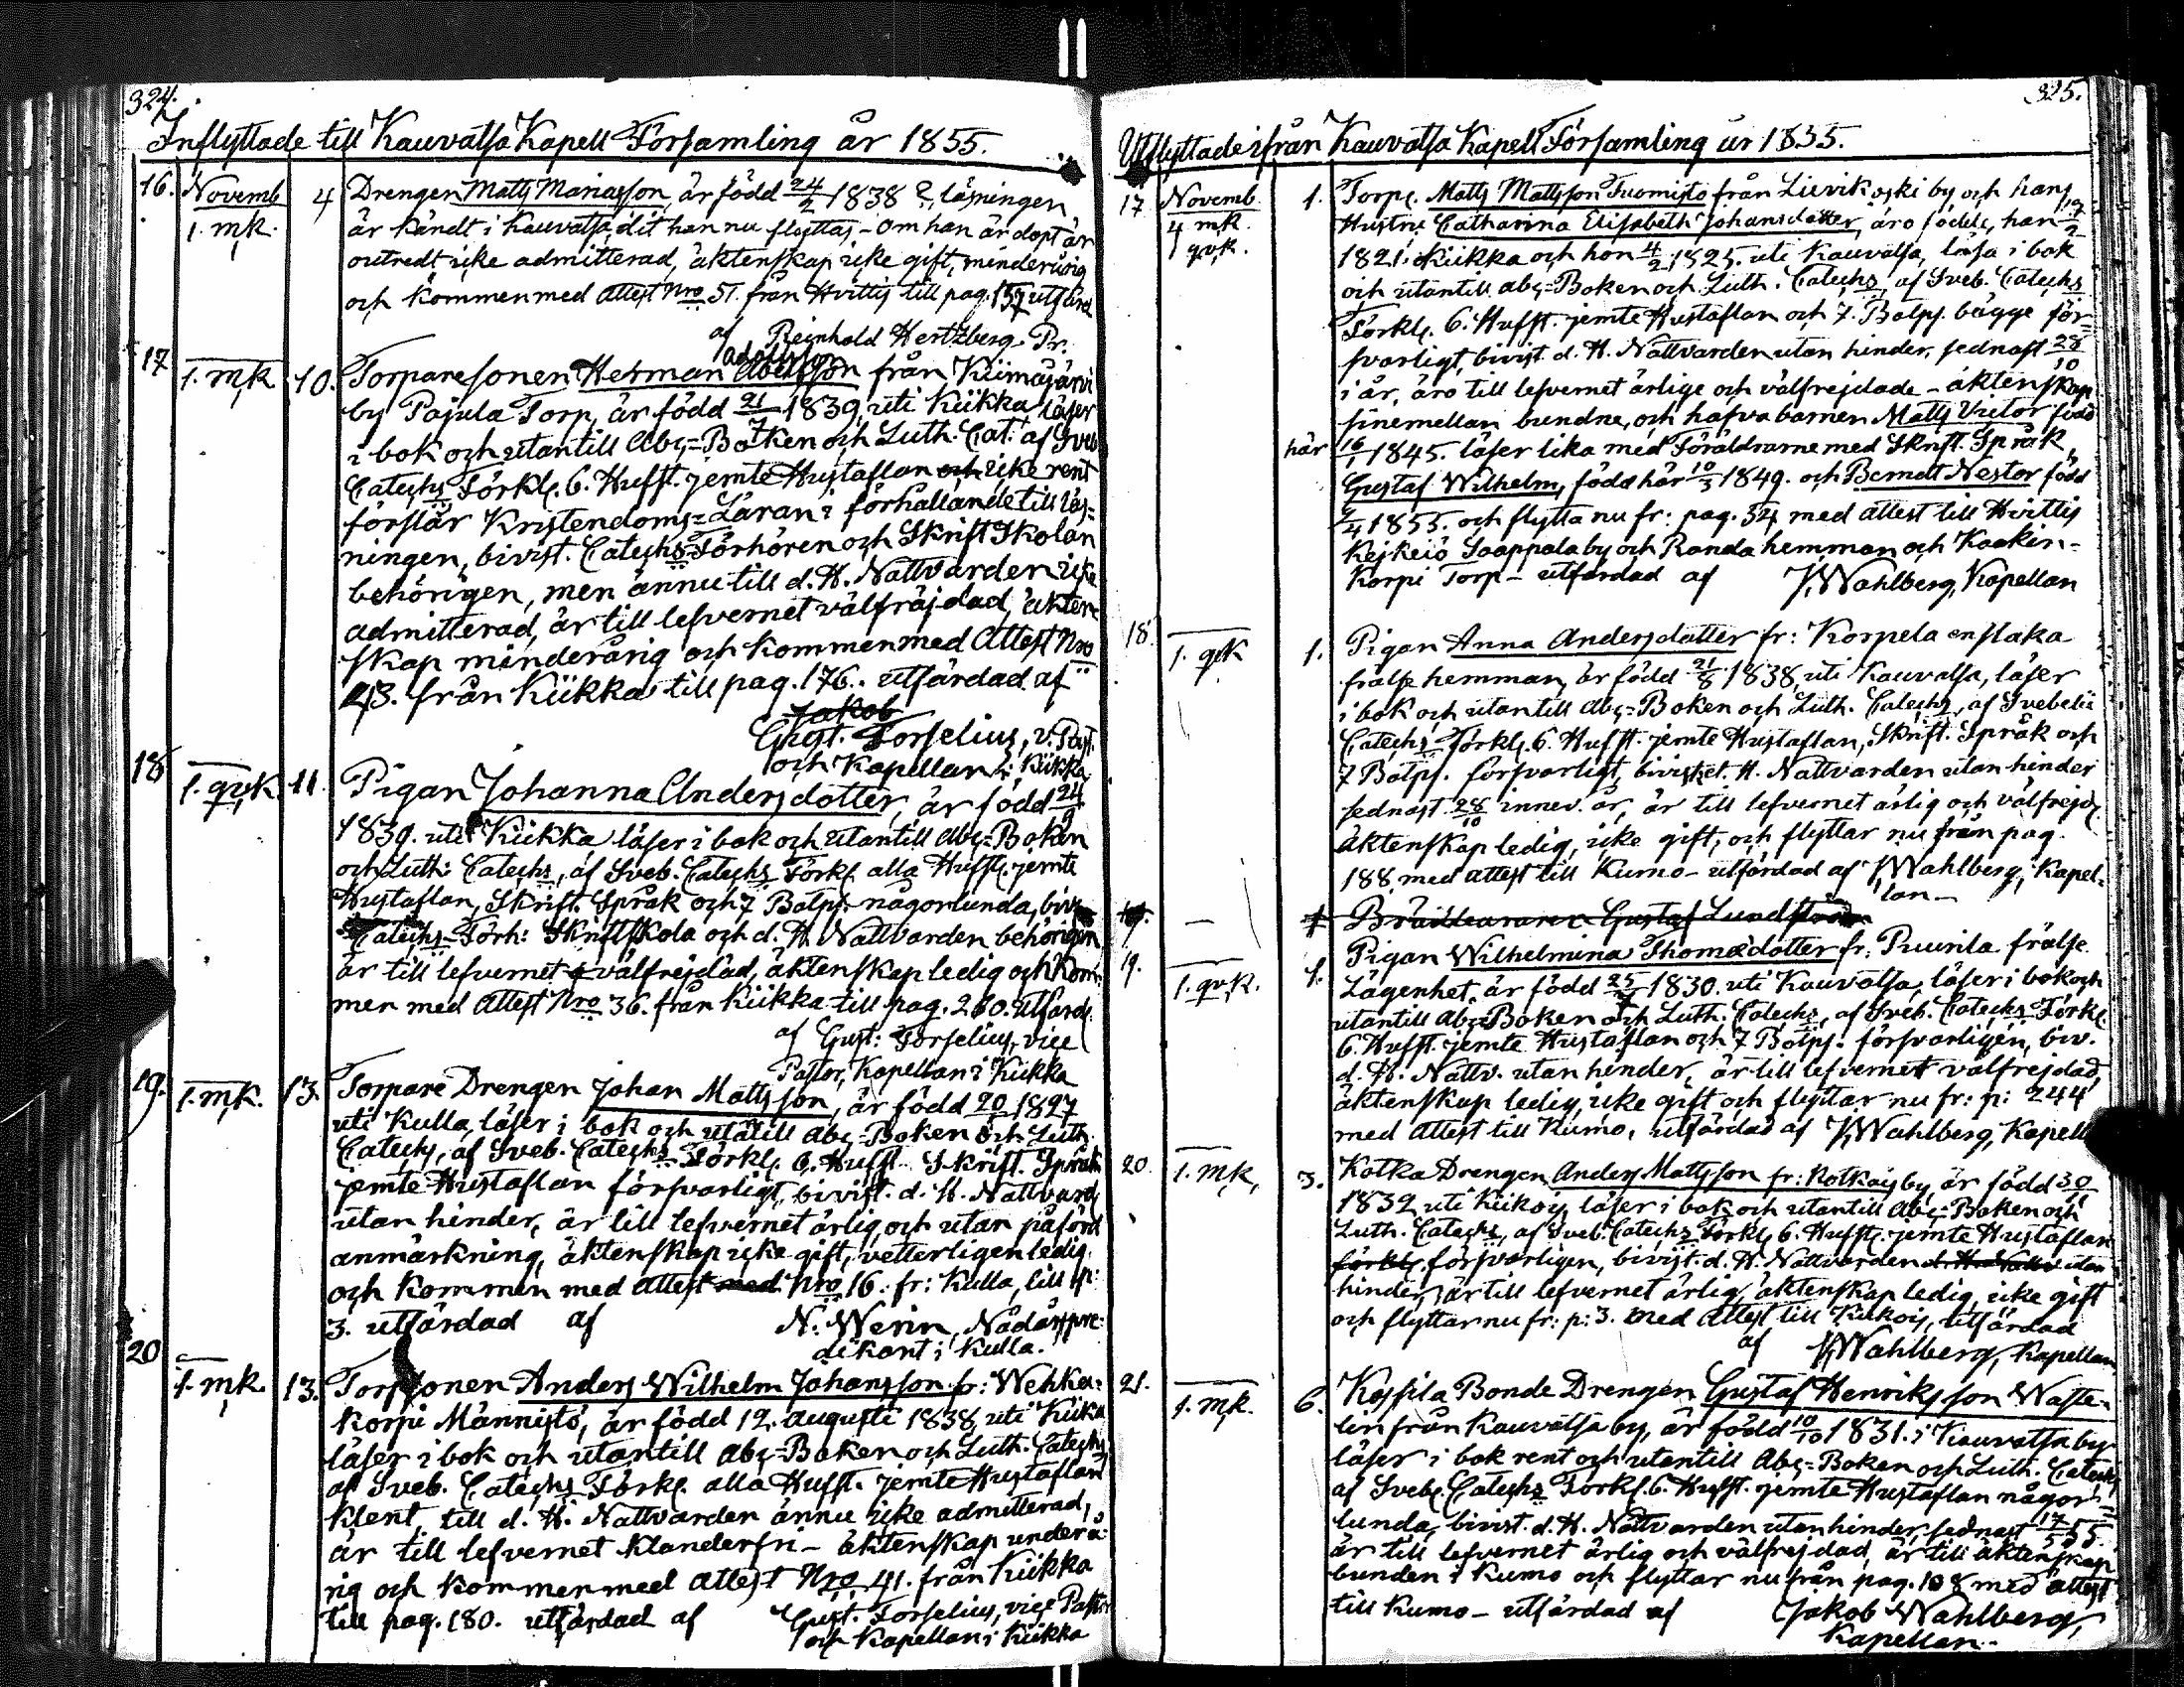 324.
Inflyttade till Kauvatsa Kapell Församling år 1855.
16. Novemb 4 Drengen Matts Mariasson, är född 24/2 1838 ?, läsningen
1. mk. är kändt i Kauvatsa, dit han nu flyttas - Om han är döpt är
outredt, icke admitterad, äktenskap icke gift, minderårig
och kommen med Attest Nro 51. från Hvittis till pag. 157 utfärd
af Reinhold Hertzberg. Pr.
Adolfsson
17 1. mk 10. Torparesonen Herman Abelsson från Kiimajärvi
by Pajula Torp, är född 21/7 1839, uti Kiikka, läser
i bok och utantill Abc-Boken och Luth. Cat. af Sveb
Catechs Förkl. 6. Hufst. jemte Hustaflan och icke rent
förstår Kristendoms-Läran i förhållande till läs-
ningen, bivist. Catechs-Förhören och Skrift Skolan
behörigen, men ännu till d. H. Nattvarden icke
admitterad, är till lefvernet välfräjdad, äkten-
skap minderårig och kommen med Attest Nro
43. från Kiikka till pag. 176. utfärdad af
Jakob
Gust. Forselius, v. Past.
och Kapellan i Kiikka
18 1. qvk 11. Pigan Johanna Andersdotter, är född 24/9
1839. uti Kiikka, läser i bok och utantill Abc-Boken
och Luth: Catechs, af Sveb. Catechs Förkl alla Hufst. jemte
Hustaflan, Skrift. Språk och 7 Botps. någorlunda, biv
Catechs-Förh: Skriftskola och d. H. Nattvarden behörigen
är till lefvernet välfrejdad, äktenskap ledig och kom-
men med Attest Nro 36. från Kiikka till pag. 260. utfärd.
af Gust: Forselius, vice
Pastor, Kapellan i Kiikka
19. 1. mk. 13. Torpare Drengen Johan Mattsson, är född 20/ 1827
uti Kulla, läser i bok och utātill Abc-Boken och Luth.
Catechs, af Sveb. Catechs Förkl. 6. Hufst. Skrift. Språk
jemte Hustaflan försvarligt, bivist. d. H. Nattvard
utan hinder, är till lefvernet ärlig, och utan påförd
anmärkning, äktenskap icke gift, vetterligen ledig
och kommen med Attest med Nro 16. fr: Kulla, till p:
3. utfärdad af N. Werin, Nådårspre-
dikant i Kulla.
20 1. mk. 13. Torpsonen Anders Wilhelm Johansson fr: Wehka-
korpi Männistö, är född 12. Augusti 1838, uti Kiika
läser i bok och utantill Abc-Boken och Luth. Catechs
af Sveb. Catechs Förkl. alla Hufst. jemte Hustaflan
klent, till d. H. Nattvarden ännu icke admitterad,
är till lefvernet klanderfri - äktenskap underå-
rig och kommen med Attest Nro 41. från Kiikka
till pag. 180. utfärdad af Gust. Forselius, vice Pastor
och Kapellan i Kiikka
325.
Utflyttade ifrån Kauvatsa Kapell Församling år 1855.
17 Novemb. 1. Torp. Matts Mattsson Tuomisto från Lievikoski by och hans
4 mk. Hustru Catharina Elisabeth Johansdotter, äro födde, han 17/2
1 qvk. 1821. i Kiikka och hon 4/2 1825. uti Kauvatsa, läsa i bok
och utantill abc-Boken och Luth. Catechs, af Sveb. Catechs
Förkl. 6. Hufst. jemte Hustaflan och 7. Botps. bägge för-
svarligt, bivist. d. H. Nattvarden utan hinder, sednast 28/10
i år, äro till lefvernet ärlige och välfrejdade - äktenskap
sinemellan bundne, och hafva barnen Matts Victor född
här 16/1 1845. läser lika med Föräldrarne med Skrift. Språk,
Gustaf Wilhelm, född här 10/3 1849. och Berndt Nestor född
/4 1855. och flytta nu fr: pag. 54 med Attest till Hvittis
Keikeiö Soappala by och Randa hemman och Kaakin-
korpi Torp - utfärdad af J. Wahlberg, Kapellan
18. 1. qvk 1. Pigan Anna Andersdotter fr: Korpela enstaka
frälse hemman, är född 21/8 1838, uti Kauvatsa, läser
i bok och utantill Abc-Boken och Luth. Catechs, af Svebelii
Catechs Förkl. 6. Hufst. jemte Hustaflan, Skrift. Språk och
7 Botps. försvarligt, bivist. d. H. Nattvarden utan hinder
sednast 28/10 innev. år, är till lefvernet ärlig och välfrejd
äktenskap ledig, icke gift, och flyttar nu från pag.
188, med Attest till Kumo - utfärdad af J. Wahlberg, Kapel-
lan -
19. - 1 Gustaf Lundström
19. 1. qvk. 1. Pigan Wilhelmina Thomædotter fr: Puurila frälse
Lägenhet, är född 25/ 1830. uti Kauvatsa, läser i bok och
utantill Abc-Boken och Luth. Catechs, af Sveb. Catechs Förkl.
6. Hufst. jemte Hustaflan och 7 Botps. försvarligen, biv.
d. H. Nattv. utan hinder, är till lefvernet välfrejdad,
äktenskap ledig, icke gift och flyttar nu fr: p: 244
med Attest till Kumo, utfärdad af J. Wahlberg, Kapell
20. 1. mk, 3. Kotka Drengen Anders Mattsson fr: Kotkais by, är född 30/11
1832, uti Kiikois, läser i bok och utantill Abc-Boken och
Luth. Catechs, af Sveb. Catechs Förkl, 6. Hufst. jemte Hustaflan
förkls. försvarligen, bivist. d. H. Nattvarden d. H. Nattv utan
hinder, är till lefvernet ärlig, äktenskap ledig, icke gift
och flyttar nu fr: p: 3. med Attest till Kiikois, utfärdad
af J. Wahlberg, Kapellan
21. 1. mk. 6. Kossila Bonde Drengen Gustaf Henriksson Wasse-
lin från Kauvatsa by, är född 10/10 1831. i Kauvatsa by
läser i bok rent och utantill Abc-Boken och Luth. Catechs
af Sveb. Catechs Förkl. 6. Hufst. jemte Hustaflan någor-
lunda, bivist. d. H. Nattvarden utan hinder, sednast 17/5 55.
är till lefvernet ärlig och välfrejdad, är till äktenskap
bunden i Kumo och flyttar nu från pag. 108 med attest
till Kumo - utfärdad af Jakob Wahlberg,
Kapellan.